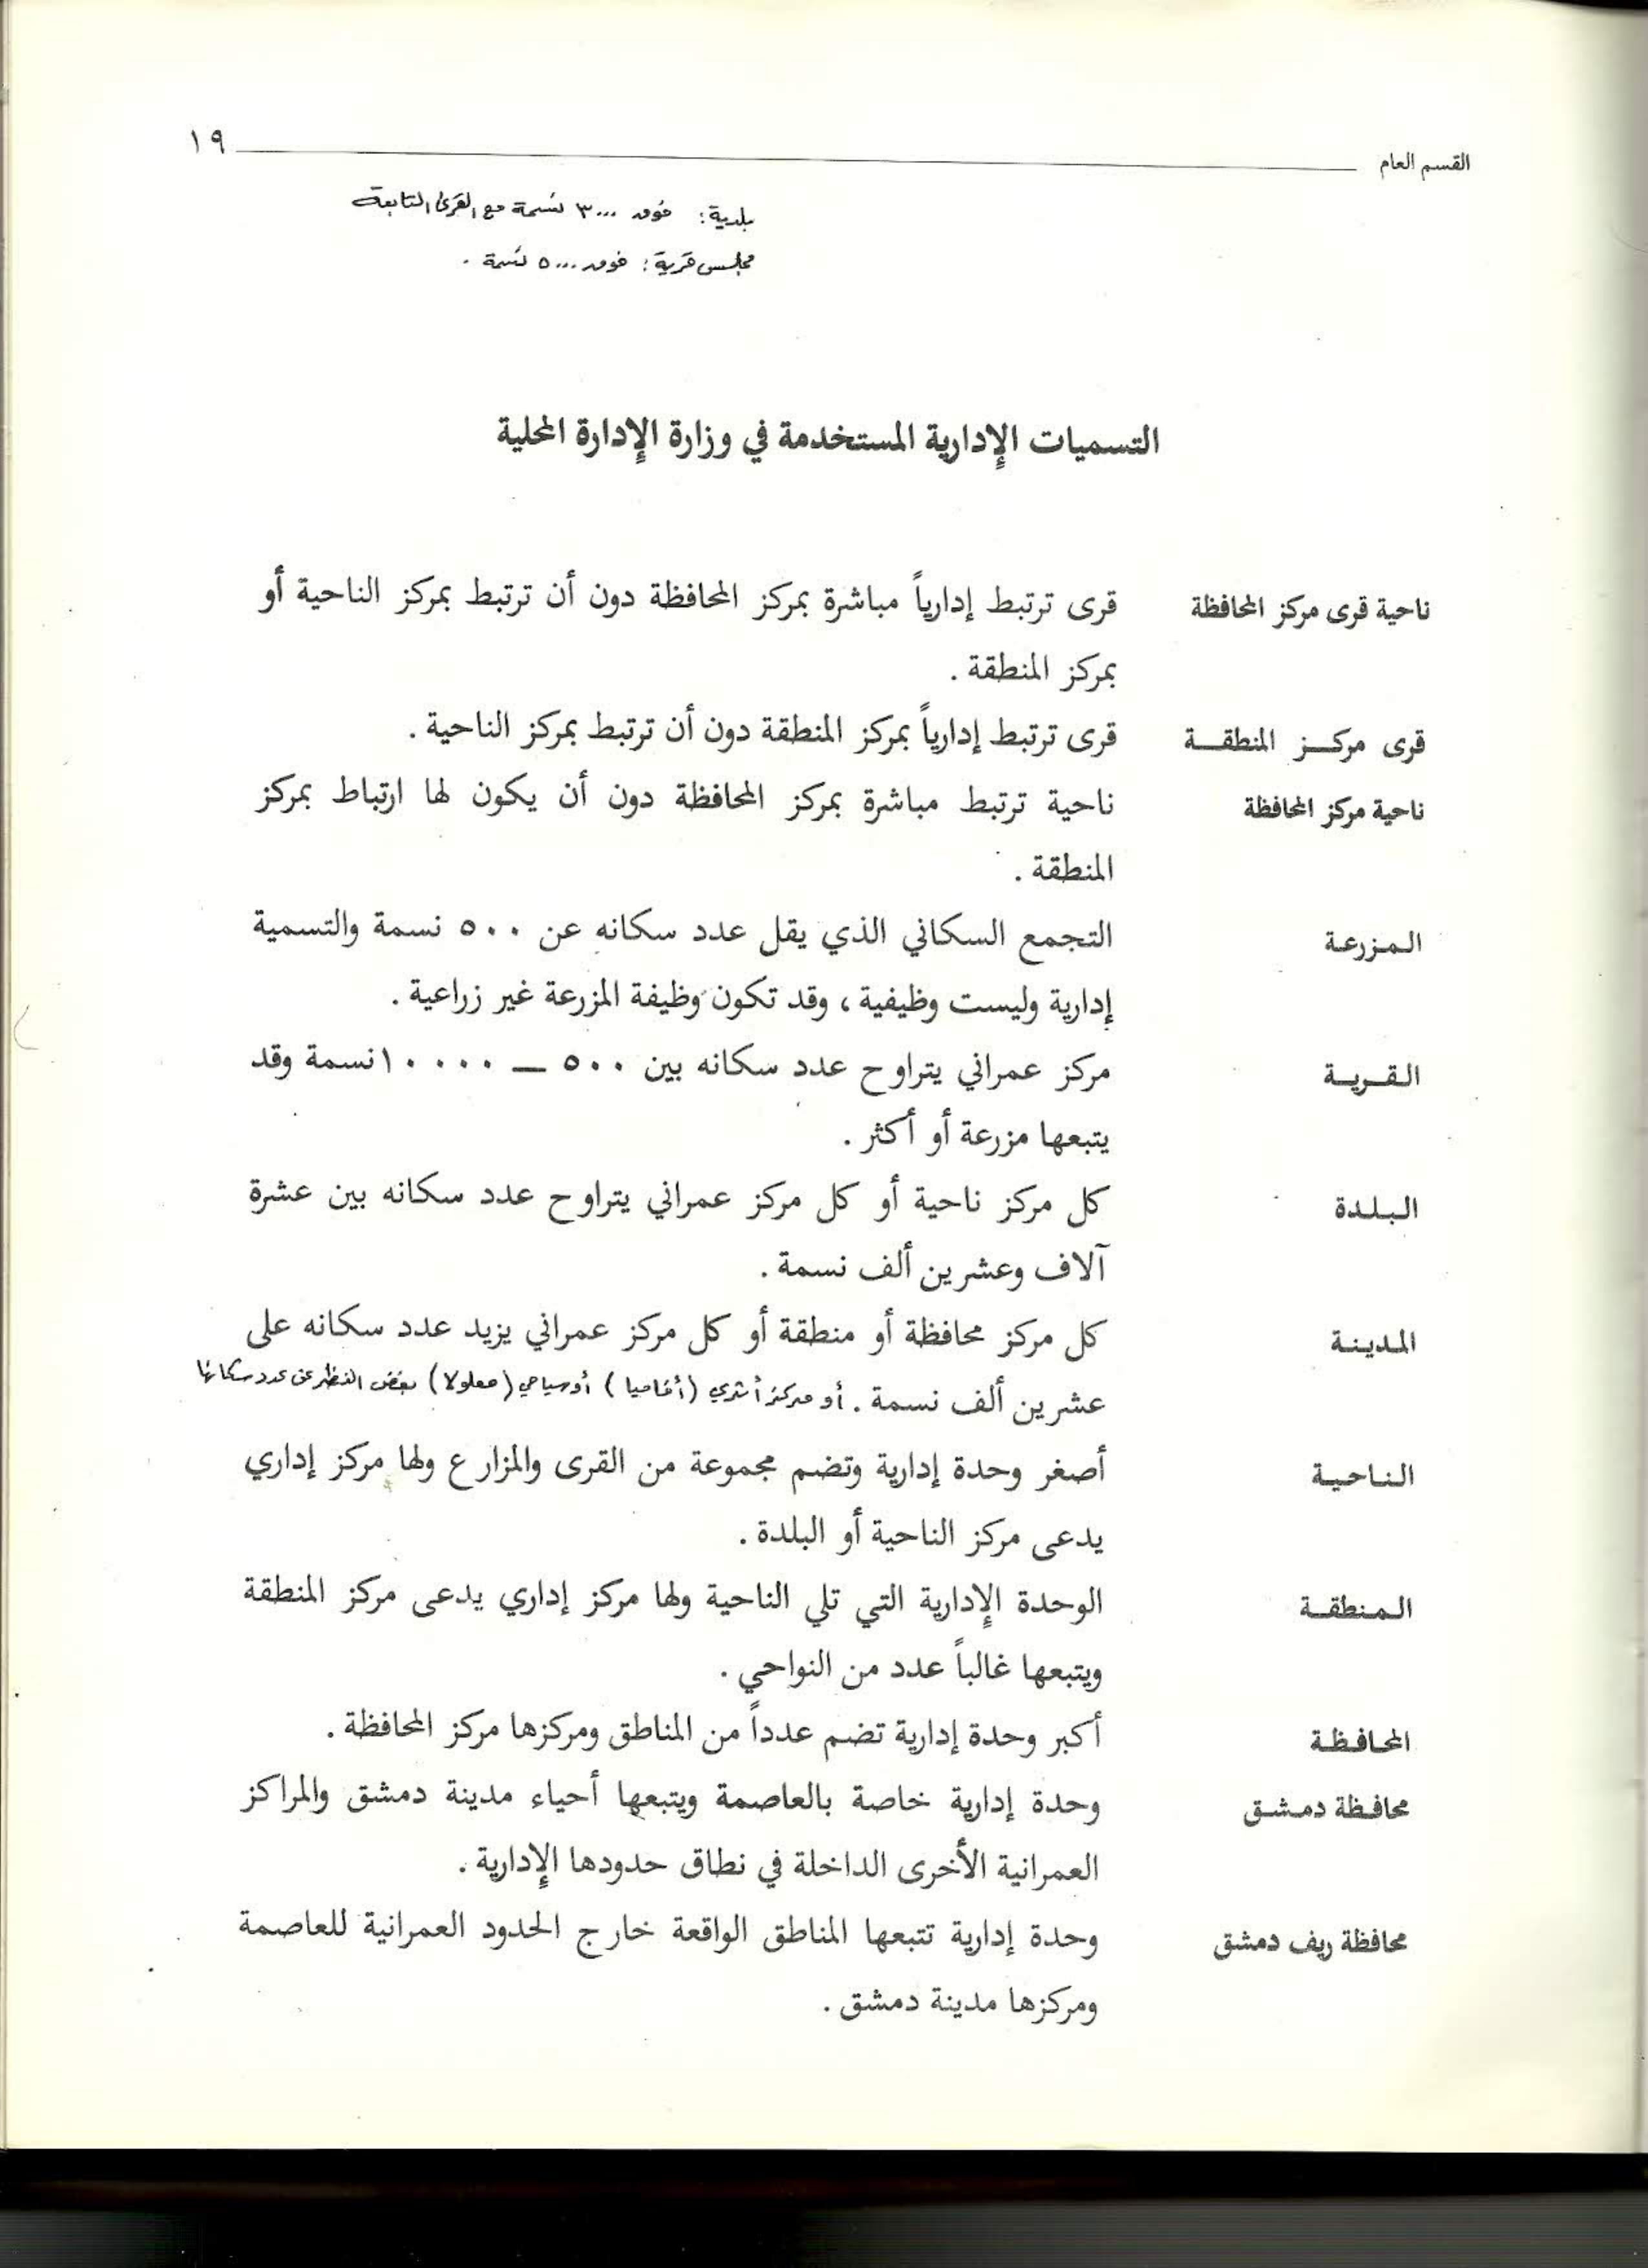 القسم العام ١٩
بلدية: فوق ٣٠٠٠ نسمة مع القرى التابعة
مجلس قرية: فوق ٥٠٠٠ نسمة .
التسميات الإدارية المستخدمة في وزارة الإدارة المحلية
ناحية قرى مركز المحافظة قرى ترتبط إدارياً مباشرة بمركز المحافظة دون أن ترتبط بمركز الناحية أو
بمركز المنطقة .
قرى مركـــز المنطقـــة قرى ترتبط إدارياً بمركز المنطقة دون أن ترتبط بمركز الناحية .
ناحية مركز المحافظة ناحية ترتبط مباشرة بمركز المحافظة دون أن يكون لها ارتباط بمركز
المنطقة .
المـزرعـة التجمع السكاني الذي يقل عدد سكانه عن ٥٠٠ نسمة والتسمية
إدارية وليست وظيفية ، وقد تكون وظيفة المزرعة غير زراعية .
القـريـة مركز عمراني يتراوح عدد سكانه بين ٥٠٠ — ١٠٠٠٠ نسمة وقد
يتبعها مزرعة أو أكثر .
البـلـدة كل مركز ناحية أو كل مركز عمراني يتراوح عدد سكانه بين عشرة
آلاف وعشرين ألف نسمة .
المدينـة كل مركز محافظة أو منطقة أو كل مركز عمراني يزيد عدد سكانه على
عشرين ألف نسمة . أو مركز أثري (أفاميا) أو سياحي (معلولا) بغض النظر عن عدد سكانها
الناحيـة أصغر وحدة إدارية وتضم مجموعة من القرى والمزارع ولها مركز إداري
يدعى مركز الناحية أو البلدة .
المنطقـة الوحدة الإدارية التي تلي الناحية ولها مركز إداري يدعى مركز المنطقة
ويتبعها غالباً عدد من النواحي .
المحافظـة أكبر وحدة إدارية تضم عدداً من المناطق ومركزها مركز المحافظة .
محافظة دمشـق وحدة إدارية خاصة بالعاصمة ويتبعها أحياء مدينة دمشق والمراكز
العمرانية الأخرى الداخلة في نطاق حدودها الإدارية .
محافظة ريف دمشق وحدة إدارية تتبعها المناطق الواقعة خارج الحدود العمرانية للعاصمة
ومركزها مدينة دمشق .